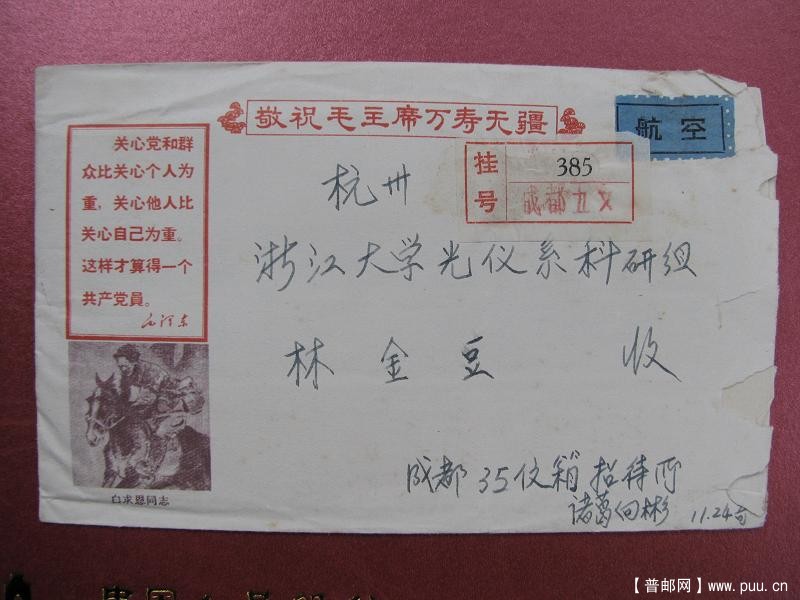 敬祝毛主席万寿无疆
关心党和群
众比关心个人为
重，关心他人比
关心自己为重。
这样才算得一个
共产党員。
毛泽东
白求恩同志
航空
挂号
385
成都九支
杭州
浙江大学光仪系科研组
林金豆 收
成都35信箱招待所
诸葛向彬 11.24
【普邮网】www.puu.cn